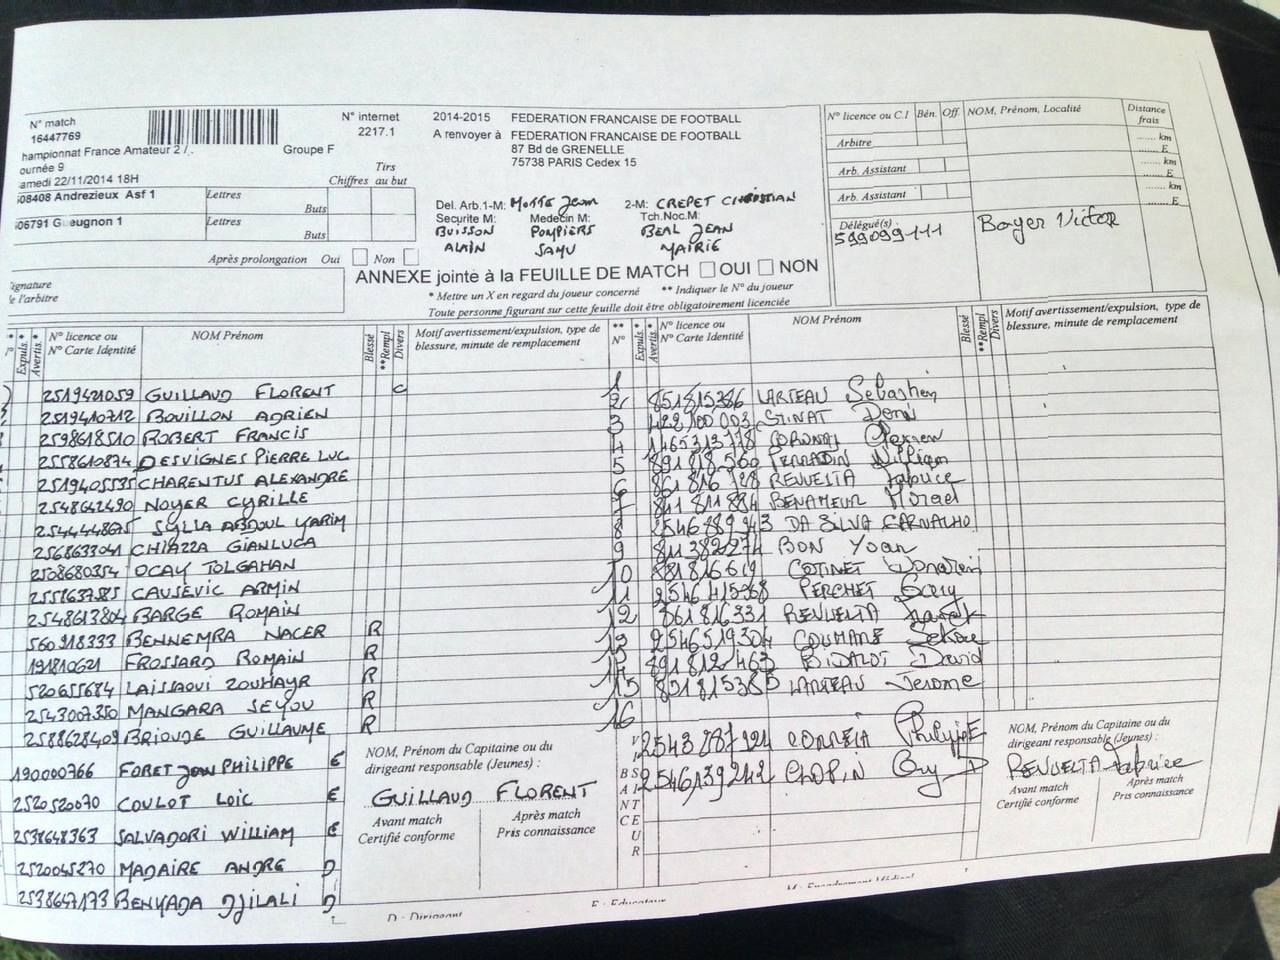 N° match
16447769
N° internet
2217.1
2014-2015 FEDERATION FRANCAISE DE FOOTBALL
A renvoyer à FEDERATION FRANCAISE DE FOOTBALL
87 Bd de GRENELLE
75738 PARIS Cedex 15
hampionnat France Amateur 2 /. Groupe F
ournée 9
amedi 22/11/2014 18H
Tirs
Chiffres au but
08408 Andrezieux Asf 1 Lettres
Buts
06791 Gueugnon 1 Lettres
Buts
Après prolongation Oui Non
Del. Arb.1-M: 2-M: CREPET CHRISTIAN
Securite M: Medecin M: Tch.Noc.M:
BUISSON POMPIERS BEAL JEAN
ALAIN SAMU MAIRIE
N° licence ou C.I Bén. Off. NOM, Prénom, Localité Distance frais
Arbitre ...... km
...... E
Arb. Assistant ...... km
...... E
Arb. Assistant ...... km
...... E
Délégué(s) :
599099111 Boyer Victor
ignature
e l'arbitre
ANNEXE jointe à la FEUILLE DE MATCH OUI NON
* Mettre un X en regard du joueur concerné ** Indiquer le N° du joueur
Toute personne figurant sur cette feuille doit être obligatoirement licenciée
Expuls. * Avertis. * N° licence ou N° Carte Identité NOM Prénom Blessé **Rempl Divers Motif avertissement/expulsion, type de blessure, minute de remplacement
** N° Expuls. * Avertis. * N° licence ou N° Carte Identité NOM Prénom Blessé **Rempl Divers Motif avertissement/expulsion, type de blessure, minute de remplacement
2519421059 GUILLAUD FLORENT C
2519410712 BOUILLON ADRIEN
2598618510 ROBERT FRANCIS
2558610874 DESVIGNES PIERRE LUC
2519405535 CHARENTUS ALEXANDRE
2548642490 NOYER CYRILLE
2544448675 SYLLA ABDOUL KARIM
2568633041 CHIAZZA GIANLUCA
2508680354 OCAY TOLGAHAN
2558637585 CAUSEVIC ARMIN
2548613804 BARGE ROMAIN
560918333 BENNEMRA NACER R
191810621 FROSSARD ROMAIN R
520655684 LAISSAOUI ZOUHAYR R
2543007350 MANGARA SEYOU R
2588628409 BRIOUDE GUILLAUME R
190000766 FORET Jean PHILIPPE E
2520520070 COULOT LOIC E
2538648363 SALVADORI WILLIAM E
2520045270 MADAIRE ANDRE D
2538647173 BENYADA DJILALI D
1
2 851815386 LARTEAU Sébastien
3 422100003 Denis
4 1465312778
5 891818560 PERRADIN William
6 861816728 REVUELTA Fabrice
7 841811884 BENAMEUR Morad
8 2546789943 DA SILVA CARNALHO
9 811382274 BON Yoan
10 881816619 COTINET
11 2546415368 PERCHET Gary
12 861816331 REVUELTA
13 2546519304 COUMANE Sekou
891812463 BIDALOT David
15 851815385 LARTEAU Jerome
16
2543787924 CORREIA PhilippE
2546139242 CHOPIN Guy D
NOM, Prénom du Capitaine ou du
dirigeant responsable (Jeunes) :
GUILLAUD FLORENT
Avant match Après match
Certifié conforme Pris connaissance
NOM, Prénom du Capitaine ou du
dirigeant responsable (Jeunes) :
REVUELTA Fabrice
Avant match Après match
Certifié conforme Pris connaissance
D : Dirigeant
E : Educateur
M : Encadrement Médical